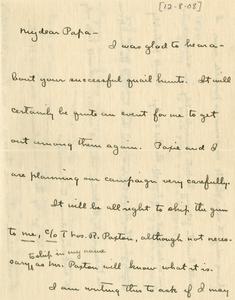 [12-8-08]
My dear Papa —
I was glad to hear a-
bout your successful quail hunt. It will
certainly be quite an event for me to get
out among them again. Paxie and I
are planning our campaign very carefully.
It will be all right to ship the gun
to me, c/o Thos. R. Paxton, although not neces-
to ship in my name
sary, as Mr. Paxton will know what it is.
I am writing this to ask if I may